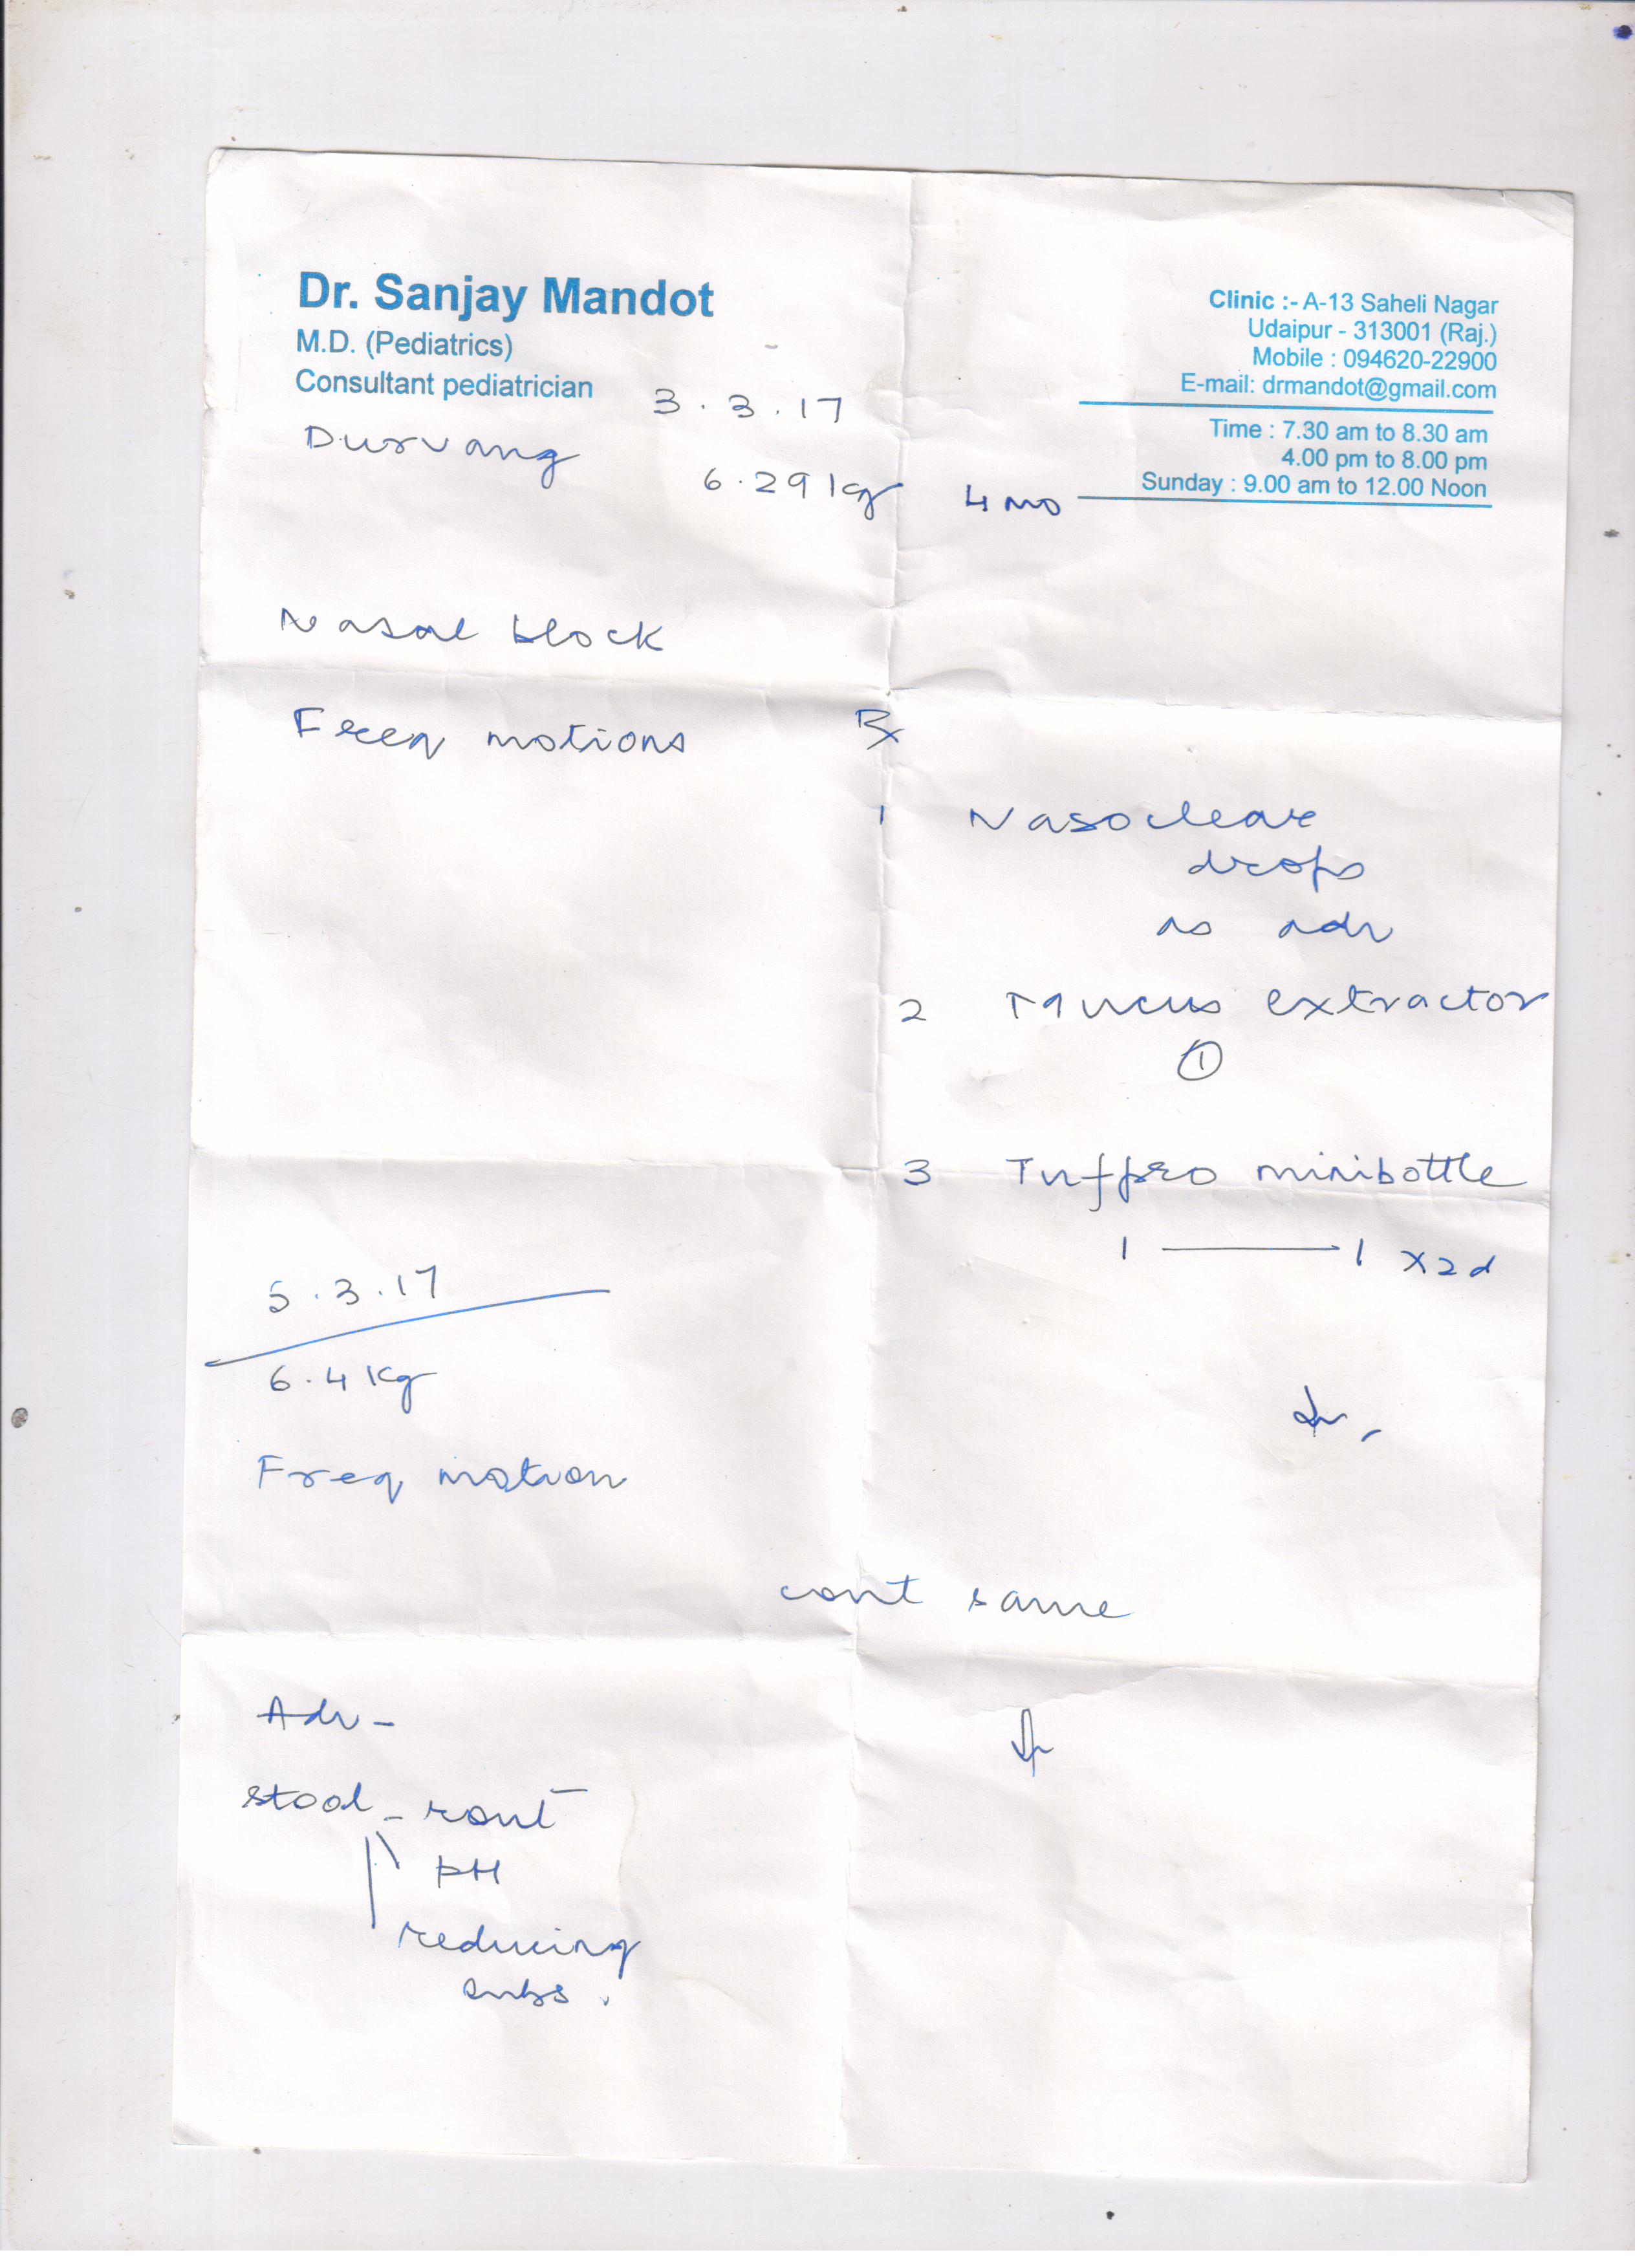 Dr. Sanjay Mandot
M.D. (Pediatrics)
Consultant pediatrician
Clinic :- A-13 Saheli Nagar
Udaipur - 313001 (Raj.)
Mobile : 094620-22900
E-mail: drmandot@gmail.com
Time : 7.30 am to 8.30 am
4.00 pm to 8.00 pm
Sunday : 9.00 am to 12.00 Noon
3.3.17
Durvang
6.29 kg 4 mo
Nasal block
Freq motions
Rx
1 Nasoclear
drops
as adv
2 Mucus extractor
①
3 Tuffpro minibottle
1 — 1 x2d
5.3.17
6.4 Kg
Freq motion
cont same
Adv -
stool - rout
PH
reducing
subs.